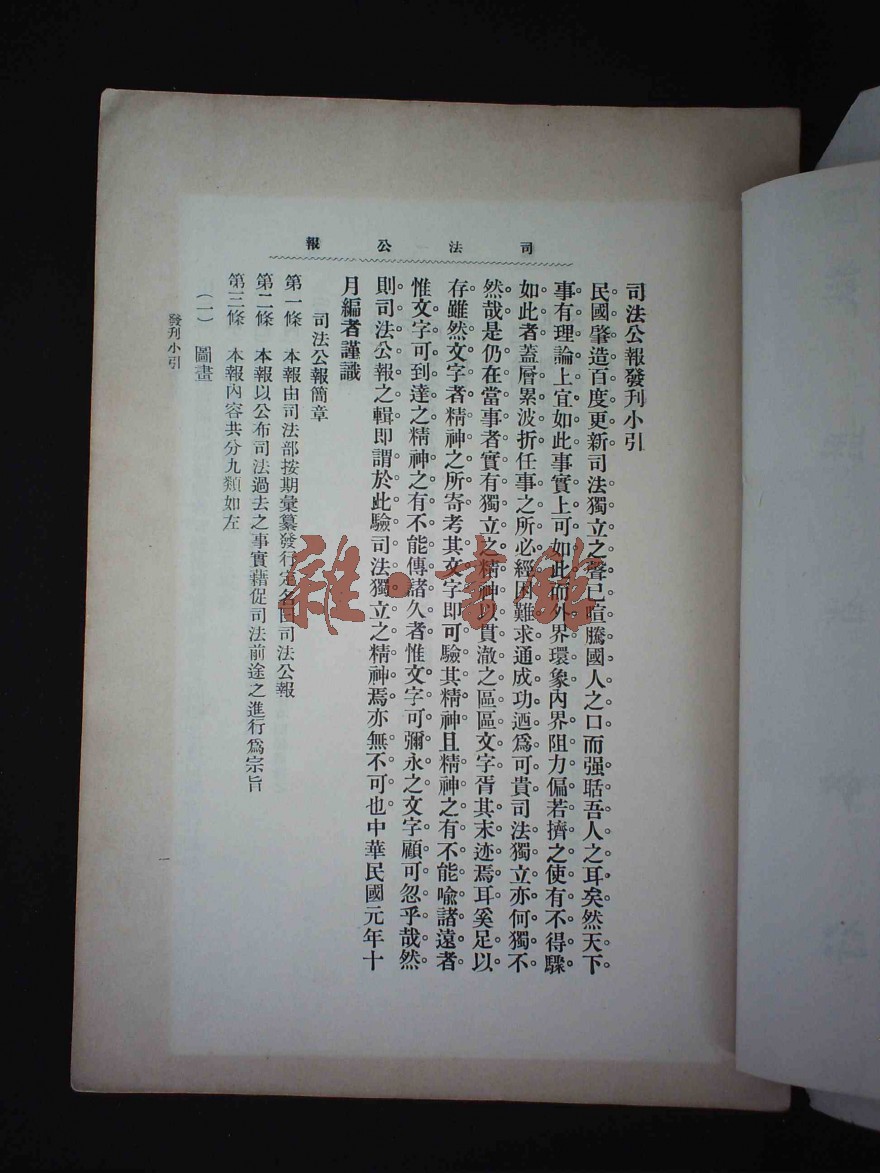 司法公報
司法公報發刋小引
民國肇造百度更新司法獨立之聲已喧騰國人之口而强聒吾人之耳矣然天下
事有理論上宜如此事實上可如此而外界環象內界阻力偏若擠之使有不得驟
如此者蓋層累波折任事之所必經困難求通成功迺爲可貴司法獨立亦何獨不
然哉是仍在當事者實有獨立之精神以貫澈之區區文字胥其末迹焉耳奚足以
存雖然文字者精神之所寄考其文字即可驗其精神且精神之有不能喩諸遠者
惟文字可到達之精神之有不能傳諸久者惟文字可彌永之文字顧可忽乎哉然
則司法公報之輯即謂於此驗司法獨立之精神焉亦無不可也中華民國元年十
月編者謹識
司法公報簡章
第一條　本報由司法部按期彙纂發行定名曰司法公報
第二條　本報以公布司法過去之事實藉促司法前途之進行爲宗旨
第三條　本報內容共分九類如左
（一）　圖畫
發刋小引
一
雜·書館